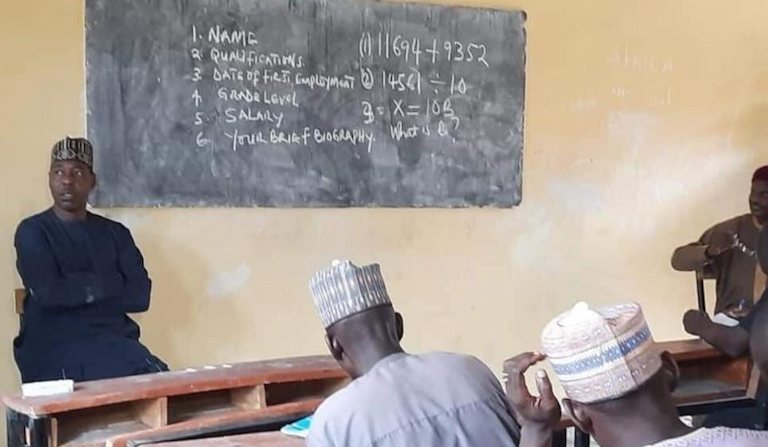 1. NAME
2. QUALIFICATIONS.
3. DATE OF FIRST, EMPLOYMENT
4. GRADE LEVEL
5. SALARY
6. YOUR BRIEF BIOGRAPHY.
(1) 11694 + 9352
② 14561 ÷ 10
3 = X = 10B
What is B?